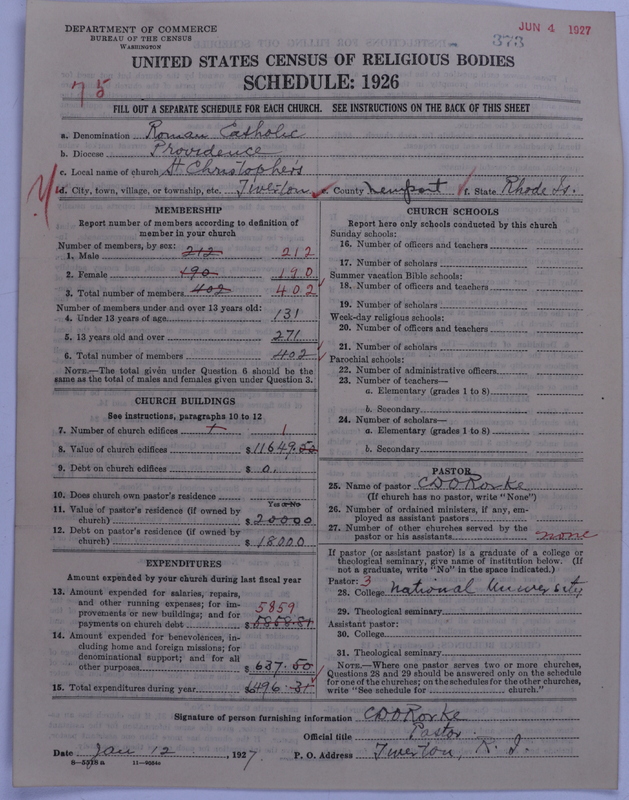 DEPARTMENT OF COMMERCE
BUREAU OF THE CENSUS
WASHINGTON
JUN 4 1927
373
UNITED STATES CENSUS OF RELIGIOUS BODIES
SCHEDULE: 1926
75
FILL OUT A SEPARATE SCHEDULE FOR EACH CHURCH. SEE INSTRUCTIONS ON THE BACK OF THIS SHEET
a. Denomination Roman Catholic
b. Diocese Providence
c. Local name of church St Christopher's
d. City, town, village, or township, etc. Tiverton e. County Newport f. State Rhode Is.
MEMBERSHIP
Report number of members according to definition of
member in your church
Number of members, by sex:
1. Male 212 212
2. Female 190 190
3. Total number of members 402 402
Number of members under and over 13 years old:
4. Under 13 years of age 131
5. 13 years old and over 271
6. Total number of members 402
NOTE.—The total given under Question 6 should be the
same as the total of males and females given under Question 3.
CHURCH BUILDINGS
See instructions, paragraphs 10 to 12
7. Number of church edifices 1
8. Value of church edifices $ 11649.50
9. Debt on church edifices $ 0.
10. Does church own pastor's residence
Yes or No
11. Value of pastor's residence (if owned by
church) $ 20000
12. Debt on pastor's residence (if owned by
church) $ 18000
EXPENDITURES
Amount expended by your church during last fiscal year
13. Amount expended for salaries, repairs,
and other running expenses; for im-
provements or new buildings; and for
payments on church debt $ 5858.81 5859
14. Amount expended for benevolences, in-
cluding home and foreign missions; for
denominational support; and for all
other purposes $ 637.50
15. Total expenditures during year 6496.31
CHURCH SCHOOLS
Report here only schools conducted by this church
Sunday schools:
16. Number of officers and teachers
17. Number of scholars
Summer vacation Bible schools:
18. Number of officers and teachers
19. Number of scholars
Week-day religious schools:
20. Number of officers and teachers
21. Number of scholars
Parochial schools:
22. Number of administrative officers
23. Number of teachers—
a. Elementary (grades 1 to 8)
b. Secondary
24. Number of scholars—
a. Elementary (grades 1 to 8)
b. Secondary
PASTOR
25. Name of pastor C D O'Rorke
(If church has no pastor, write "None")
26. Number of ordained ministers, if any, em-
ployed as assistant pastors
27. Number of other churches served by the
pastor or his assistants none
If pastor (or assistant pastor) is a graduate of a college or
theological seminary, give name of institution below. (If
not a graduate, write "No" in the space indicated.)
Pastor: 3
28. College National University
29. Theological seminary
Assistant pastor:
30. College
31. Theological seminary
NOTE.—Where one pastor serves two or more churches,
Questions 28 and 29 should be answered only on the schedule
for one of the churches; on the schedules for the other churches,
write "See schedule for church."
Signature of person furnishing information C D O'Rorke
Official title Pastor
Date Jan 12, 1927 P. O. Address Tiverton, R. I.
8—5518 a 11—9054a